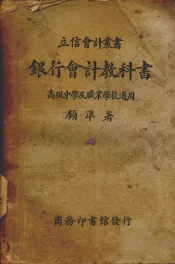 立信會計叢書
銀行會計教科書
高級中學及職業學校適用
顧準著
商務印書館發行